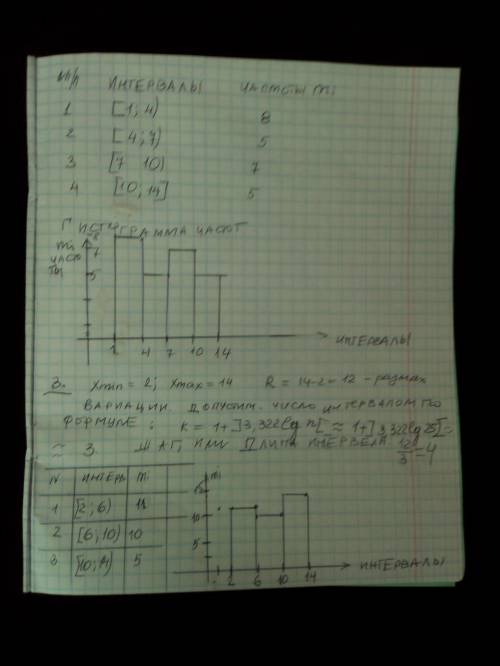 №п/п ИНТЕРВАЛЫ ЧАСТОТЫ mi
1 [1; 4) 8
2 [4; 7) 5
3 [7 10) 7
4 [10; 14] 5
ГИСТОГРАММА ЧАСТОТ
mi
ЧАСТО
ТЫ
8
7
5
1 4 7 10 14 ИНТЕРВАЛЫ
3. Xmin = 2; Xmax = 14 R = 14-2 = 12 - размах
ВАРИАЦИИ. ДОПУСТИМ. ЧИСЛО ИНТЕРВАЛОМ ПО
ФОРМУЛЕ: K = 1+]3,322lg n[ ≈ 1+]3,322lg25[ =
≈ 3. ШАГ, ИЛИ ДЛИНА ИНТЕРВЕЛА 12/3 = 4
N ИНТЕРВ mi
1 [2; 6) 11
2 [6; 10) 10
3 [10; 14) 5
mi
10
5
2 6 10 14 ИНТЕРВАЛЫ